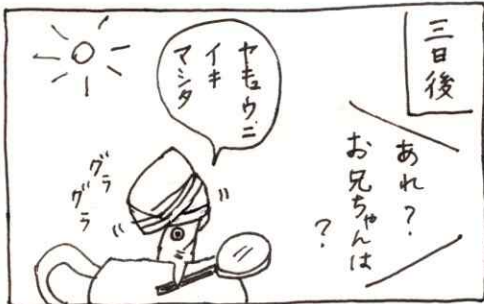 三日後
あれ?
お兄ちゃんは
?
ヤキュウニ
イキ
マシタ
グラ
グラ